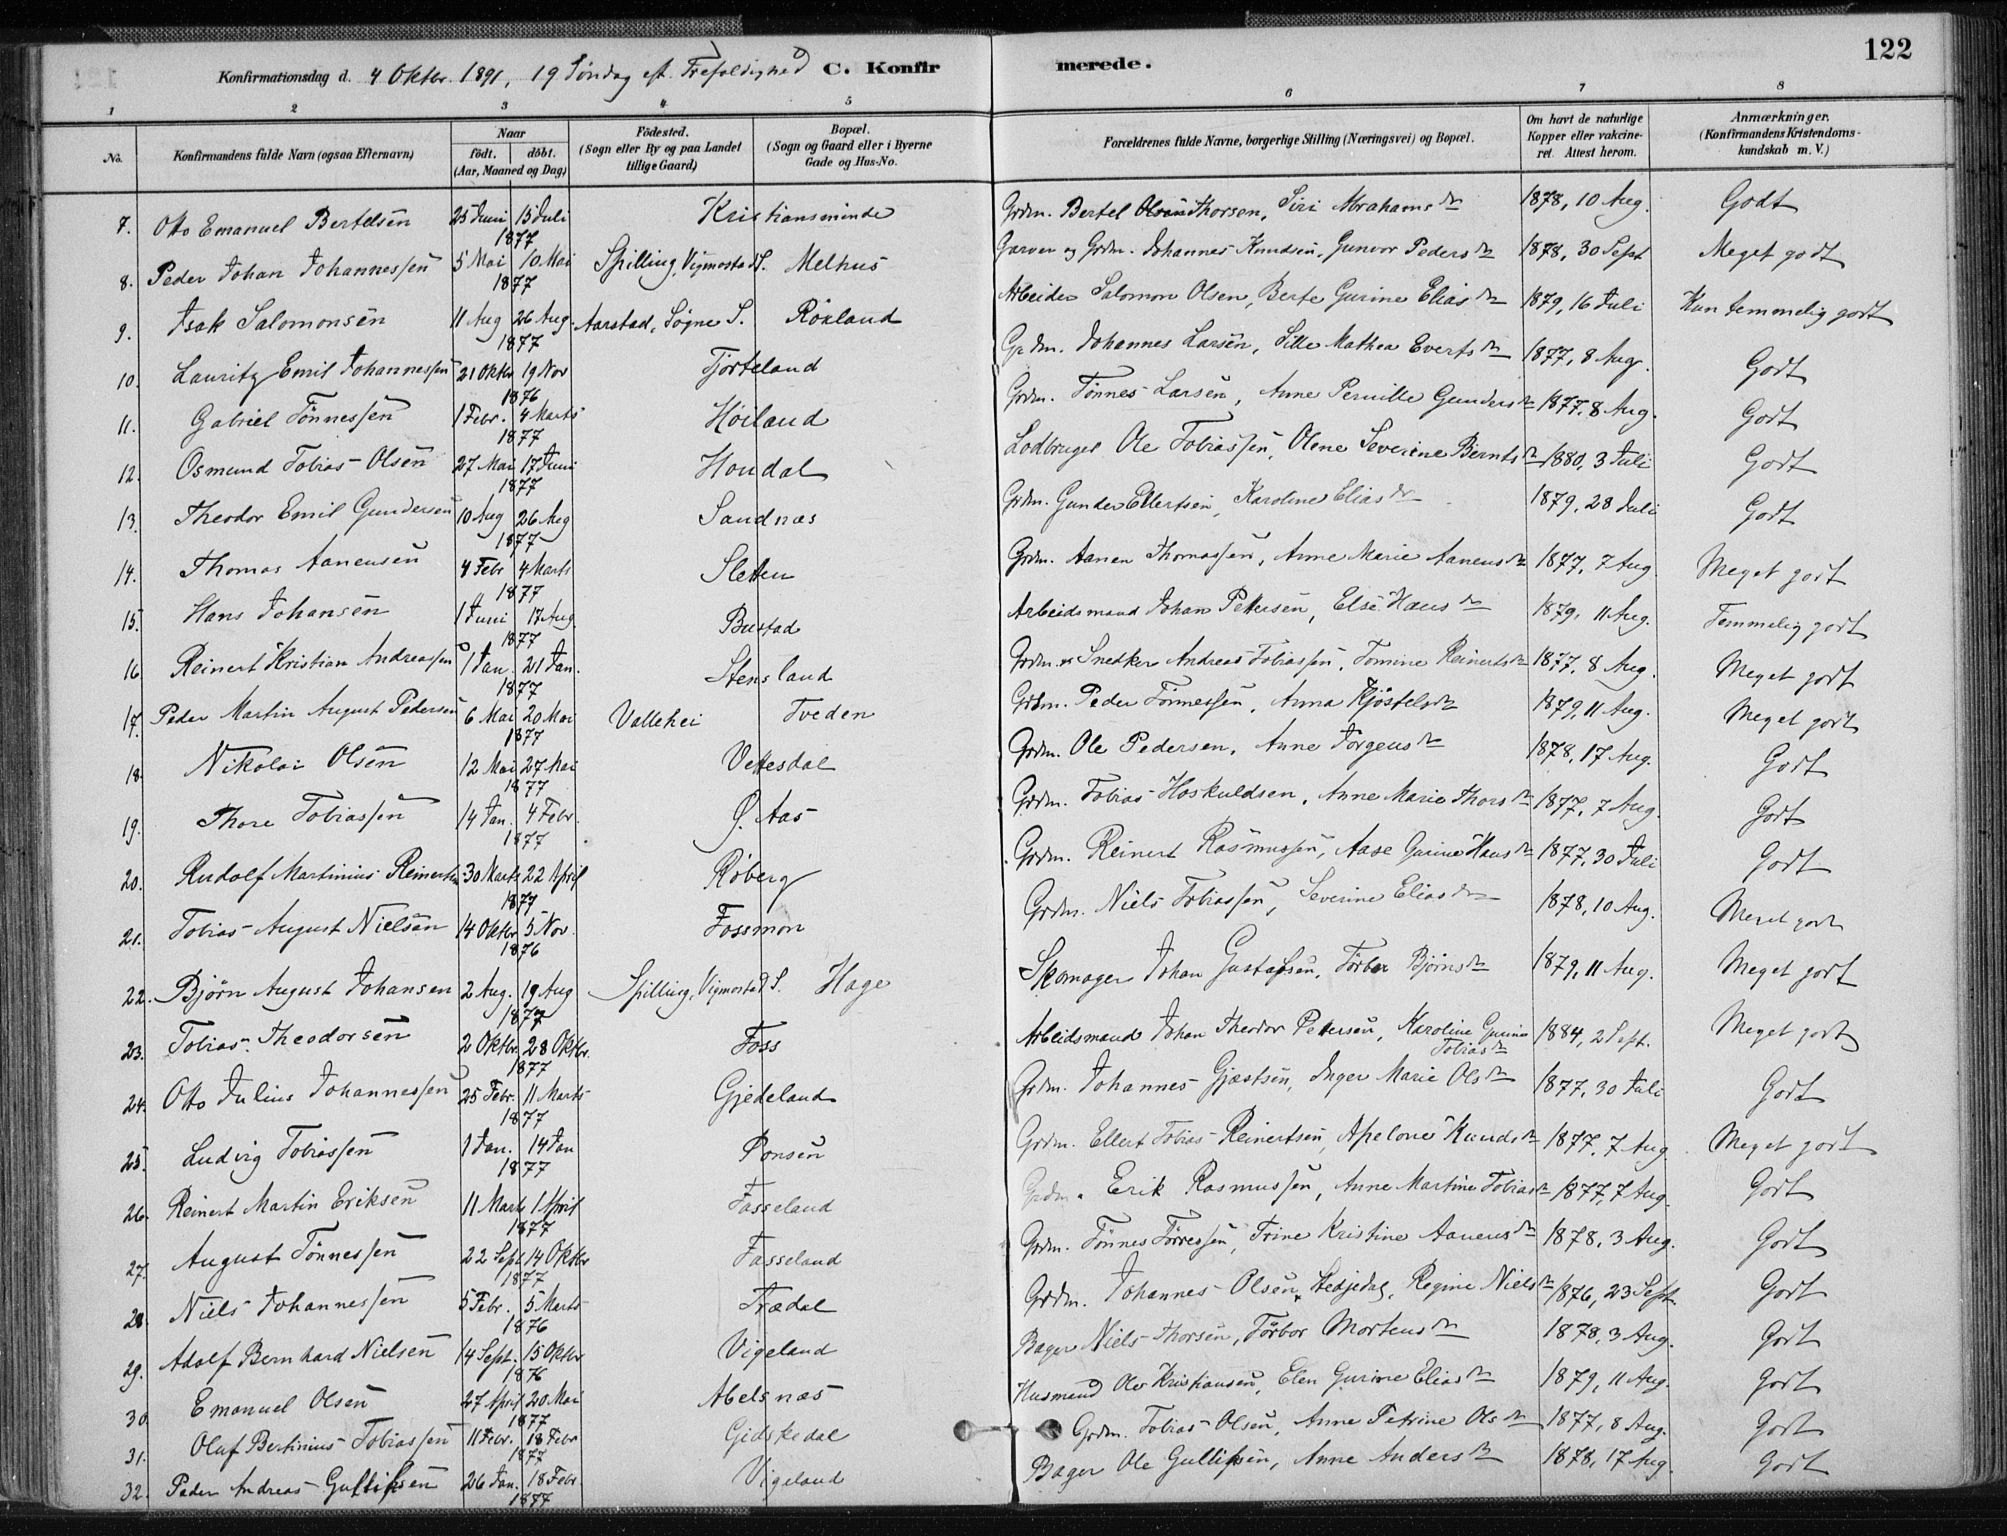 122
Konfirmationsdag d. 4 Oktbr. 1891, 19 Søndag eft. Trefoldighed C. Konfirmerede.
1 2 3 4 5 6 7 8
No. Konfirmandens fulde Navn (ogsaa Efternavn) Naar født. døbt. (Aar, Maaned og Dag) Fødested. (Sogn eller By og paa Landet tillige Gaard) Bopæl. (Sogn og Gaard eller i Byerne Gade og Hus-No. Forældrenes fulde Navne, borgerlige Stilling (Næringsvei) og Bopæl. Om havt de naturlige Kopper eller vakcineret. Attest herom. Anmærkninger. (Konfirmandens Kristendomskundskab m. V.)
7. Otto Emanuel Bertelsen 25 Juni 15 Juli 1877 Kristiansminde Grdm. Bertel Thorsen, Siri Abrahamsdtr 1878, 10 Aug. Godt
8. Peder Johan Johannessen 5 Mai 10 Mai 1877 Spilling, Vigmostad S. Melhus Garver og Grdm. Johannes Knudsen, Gunvor Pedersdtr 1878, 30 Sept Meget godt
9. Isak Salomonsen 11 Aug 26 Aug. 1877 Aarstad, Søgne S. Röxland Arbeider Salomon Olsen, Berte Gurine Eliasdtr 1879, 16 Juli Kun temmelig godt
10. Lauritz Emil Johannessen 21 Oktbr 19 Nov 1876 Tjorteland Grdm. Johannes Larsen, Sille Mathea Evertsdtr 1877, 8 Aug. Godt
11. Gabriel Tönnessen 1 Febr. 4 Marts 1877 Höiland Grdm. Tönnes Larsen, Anne Pernille Gundersdtr 1877, 8 Aug. Godt
12. Osmund Tobias Olsen 27 Mai 17 Juni 1877 Houdal Lodbruger Ole Tobiassen, Olene Severine Berntsdtr 1880, 3 Juli Godt
13. Theodor Emil Gundersen 10 Aug 26 Aug 1877 Sandnæs Grdm. Gunder Ellertsen, Karoline Eliasdtr 1879, 28 Juli Godt
14. Thomas Aanensen 4 Febr 4 Marts 1877 Sletten Grdm. Aanen Thomassen, Anne Marie Aanensdtr 1877, 7 Aug. Meget godt
15. Hans Johansen 1 Juni 17 Aug. 1877 Bustad Arbeidsmand Johan Pettersen, Else Hansdtr 1879, 11 Aug. Temmelig godt
16 Reinert Kristian Andreassen 1 Jan. 21 Jan. 1877 Stensland Grdm. og Snedker Andreas Tobiassen, Tomine Reinertsdtr 1877, 8 Aug. Meget godt
17. Peder Martin August Pedersen 6 Mai 20 Mai 1877 Vallehei Tveden Grdm. Peder Tönnessen, Anna Kjöstelsdtr 1879, 11 Aug. Meget godt
18. Nikolai Olsen 12 Mai 27 Mai 1877 Vettesdal Grdm. Ole Pedersen, Anne Jörgensdtr 1878, 17 Aug. Godt
19. Thore Tobiassen 14 Jan. 4 Febr. 1877 Ø. Aas Grdm. Tobias Hoskuldsen, Anne Marie Thorsdtr 1877, 7 Aug. Godt
20. Rudolf Martinius Reinertsen 30 Marts 22 April 1877 Röberg Grdm. Reinert Rasmussen, Aase Gurine Hansdtr 1877, 30 Juli Godt
21. Tobias August Nielsen 14 Oktbr 5 Nov. 1876 Fossmon Grdm. Niels Tobiassen, Severine Eliasdtr 1878, 10 Aug. Meget godt
22. Bjørn August Johansen 2 Aug. 19 Aug 1877 Spilling, Vigmostad S. Hage Skomager Johan Gustafsen, Törbor Bjørnsdtr 1879, 11 Aug. Meget godt
23. Tobias Theodorsen 2 Oktbr. 28 Oktbr. 1877 Foss Arbeidsmand Johan Theodor Pettersen, Karoline Gurine Tobiasdtr 1884, 2 Sept. Meget godt
24. Otto Julius Johannessen 25 Febr. 11 Marts 1877 Gjedeland Grdm. Johannes Gjæstsen, Inger Marie Olsdtr 1877, 30 Juli Godt
25. Ludvig Tobiassen 1 Jan. 14 Jan 1877 Grdm. Ellert Tobias Reinertsen, Apelone Knudsdtr 1877, 7 Aug. Meget godt
26. Reinert Martin Eriksen 11 Marts 1 April 1877 Fasseland Grdm. Erik Rasmussen, Anne Martine Tobiasdtr 1877, 7 Aug. Godt
27. August Tönnessen 22 Sept 14 Oktbr 1877 Fasseland Grdm. Tönnes Törressen, Trine Kristine Aanensdtr 1878, 3 Aug. Godt
28. Niels Johannessen 5 Febr. 5 Marts 1876 Trædal Grdm. Johannes Olsen, Regine Nielsdtr 1876, 23 Sept. Godt
29. Adolf Bernhard Nielsen 14 Sept. 15 Oktbr 1876 Vigeland Bager Niels Thorsen, Törbor Mortensdtr 1878, 3 Aug. Godt
30. Emanuel Olsen 27 April 20 Mai 1877 Abelsnæs Husmand Ole Kristiansen, Elen Gurine Eliasdtr 1879, 11 Aug. Godt
31. Oluf Bertinius Tobiassen 11 Febr. 18 Febr 1877 Gidskedal Grdm. Tobias Olsen, Anne Petrine Olsdtr 1877, 8 Aug. Godt
32. Peder Andreas Gulliksen 26 Jan. 18 Febr. 1877 Vigeland Bager Ole Gulliksen, Anne Andersdtr 1878, 17 Aug. Godt